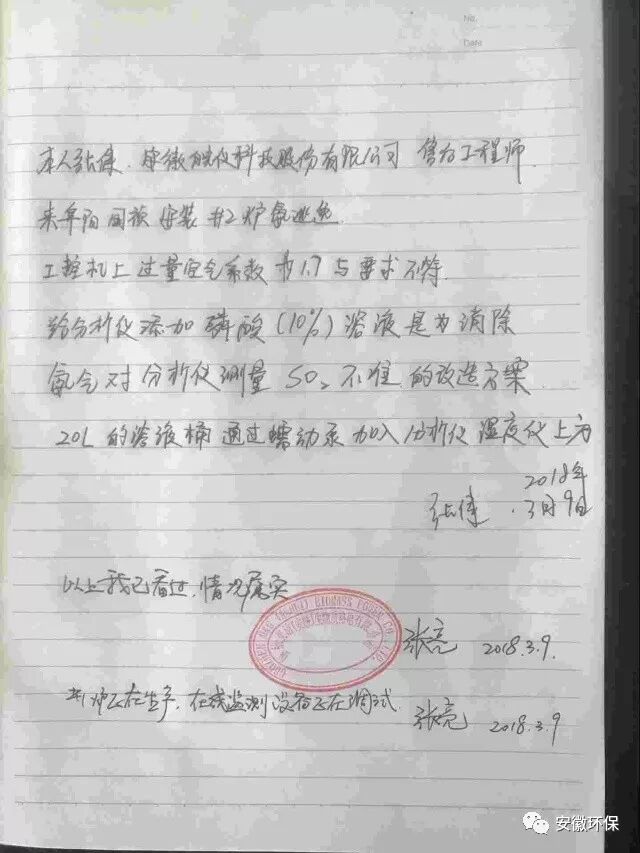 No.
Date
本人张健.安徽皖仪科技股份有限公司 售后工程师.
来阜阳国祯 安装 #2炉氨逃逸
工控机上过量空气系数为1.7与要求不符.
给分析仪添加磷酸(10%)溶液是为消除
氨气对分析仪测量SO₂不准的改造方案.
20L的溶液桶通过蠕动泵加入分析仪湿度仪上方
2018年
张健.3月9日
以上我已看过,情况属实
张亮 2018.3.9.
#1炉正在生产,在线监测设备正在调试.
张亮 2018.3.9
安徽环保